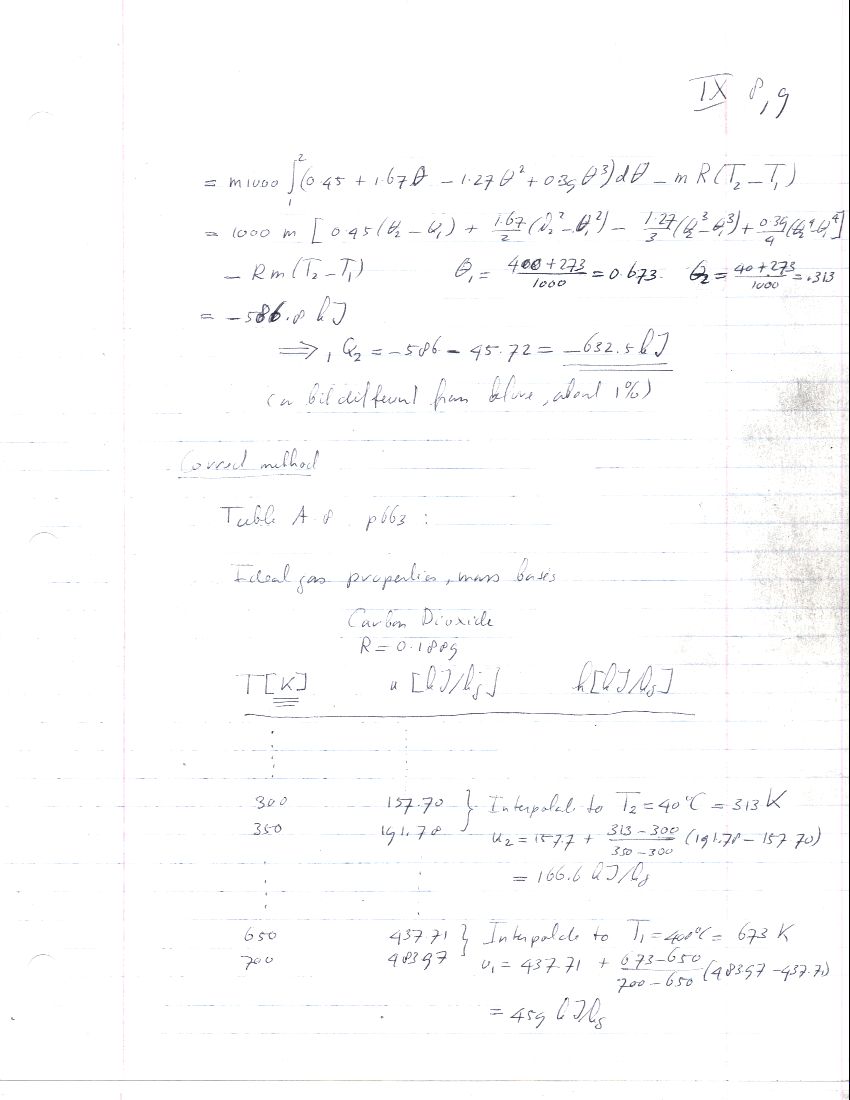 IX 8, 9
= m1000 ∫₁² (0.45 + 1.67θ − 1.27θ² + 039θ³)dθ − m R(T₂ − T₁)
= 1000 m [ 0.45(θ₂ − θ₁) + 1.67/2 (θ₂² − θ₁²) − 1.27/3 (θ₂³ − θ₁³) + 0.39/4 (θ₂⁴ − θ₁⁴]
− Rm(T₂ − T₁) θ₁ = 400+273/1000 = 0.673. θ₂ = 40+273/1000 = .313
= −586.8 kJ
⟹ ₁Q₂ = −586 − 45.72 = −632.5 kJ
(a bit different from before, about 1%)
Correct method
Table A 8 p663 :
Ideal gas properties, mass bases
Carbon Dioxide
R = 0.1889
T[K] u [kJ/kg] h[kJ/kg]
300 157.70 } Interpolate to T₂ = 40°C = 313 K
350 191.78 u₂ = 157.7 + 313−300/350−300 (191.78 − 157 70)
= 166.6 kJ/kg
650 437 71 } Interpolate to T₁ = 400°C = 673 K
700 48397 u₁ = 437.71 + 673−650/700−650 (48397 − 437.71)
= 459 kJ/kg